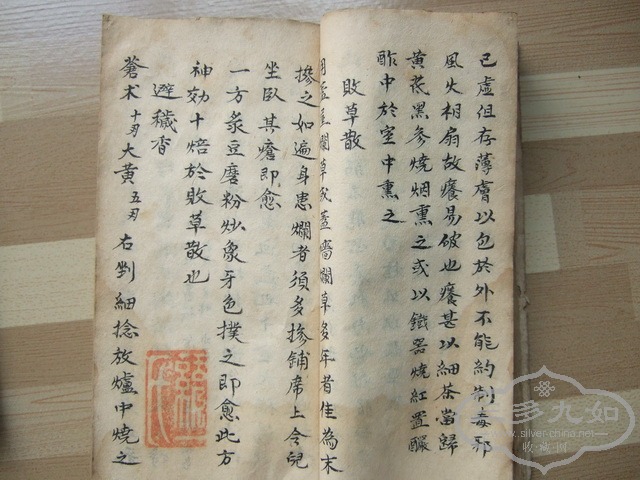 已虛但存薄膚以包於外不能約制毒邪
風火相扇故癢易破也癢甚以細茶當歸
黃芪黑參燒烟熏之或以鐵器燒紅置釅
酢中於室中熏之
敗草散
用蓋屋爛草或蓋墻爛草多年者佳為末
摻之如遍身患爛者須多摻鋪席上令兒
坐臥其瘡即愈
一方菉豆磨粉炒象牙色撲之即愈此方
神効十焙於敗草散也
避穢香
蒼术十刄大黃五刄右剉細捻放爐中燒之
三多九如
www.silver-china.net
收藏網